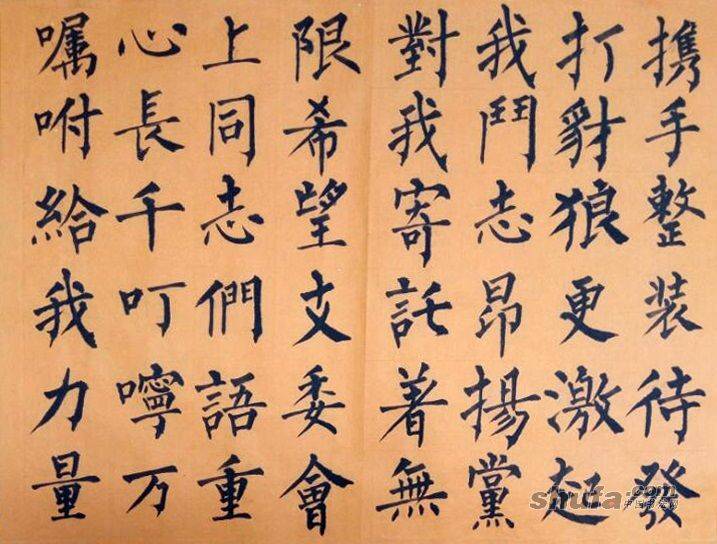 携手整装待發
打豺狼更激起
我鬥志昂揚黨
對我寄託着無
限希望支委會
上同志們語重
心長千叮嚀万
嘱咐給我力量
shufa.com
中国书法网